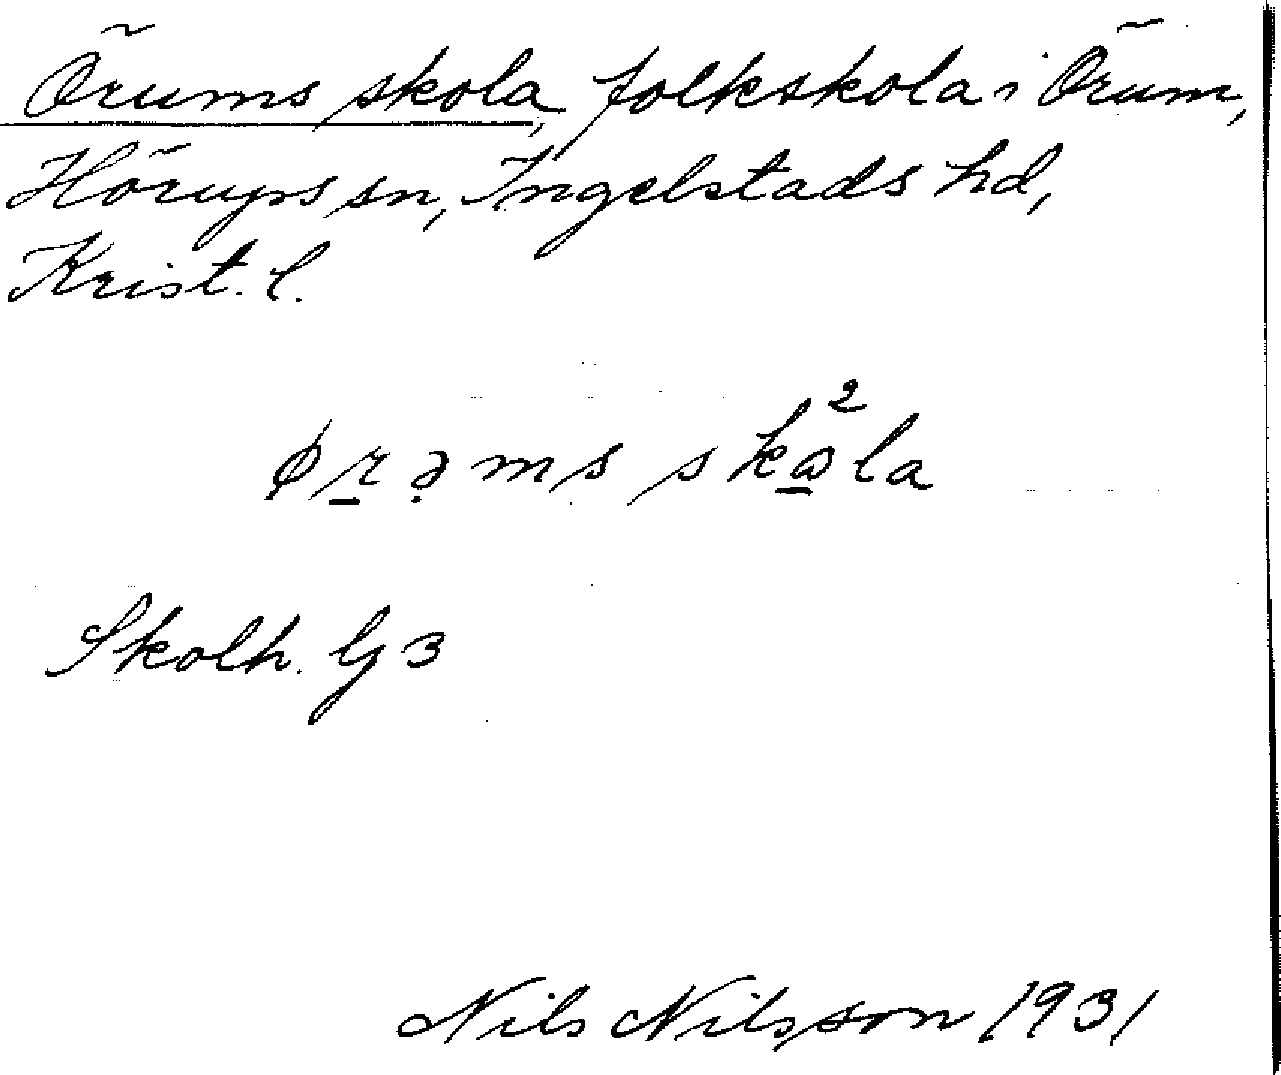 Örums skola, folkskola i Örum,
Hörups sn, Ingelstads hd,
Krist. l.
ørəms skɷ²la
Skolh. G 3
Nils Nilsson 1931